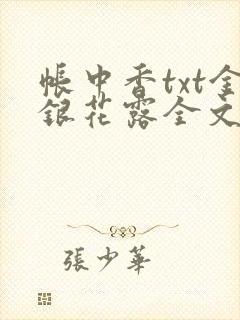 帳中香txt金
銀花露全文
張少華